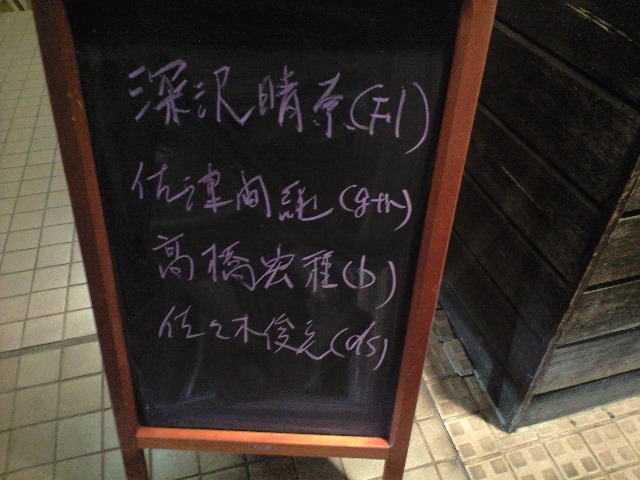 深沢晴奈(Fl)
佐津間純(gtr)
高橋 種(b)
佐々木俊之(ds)